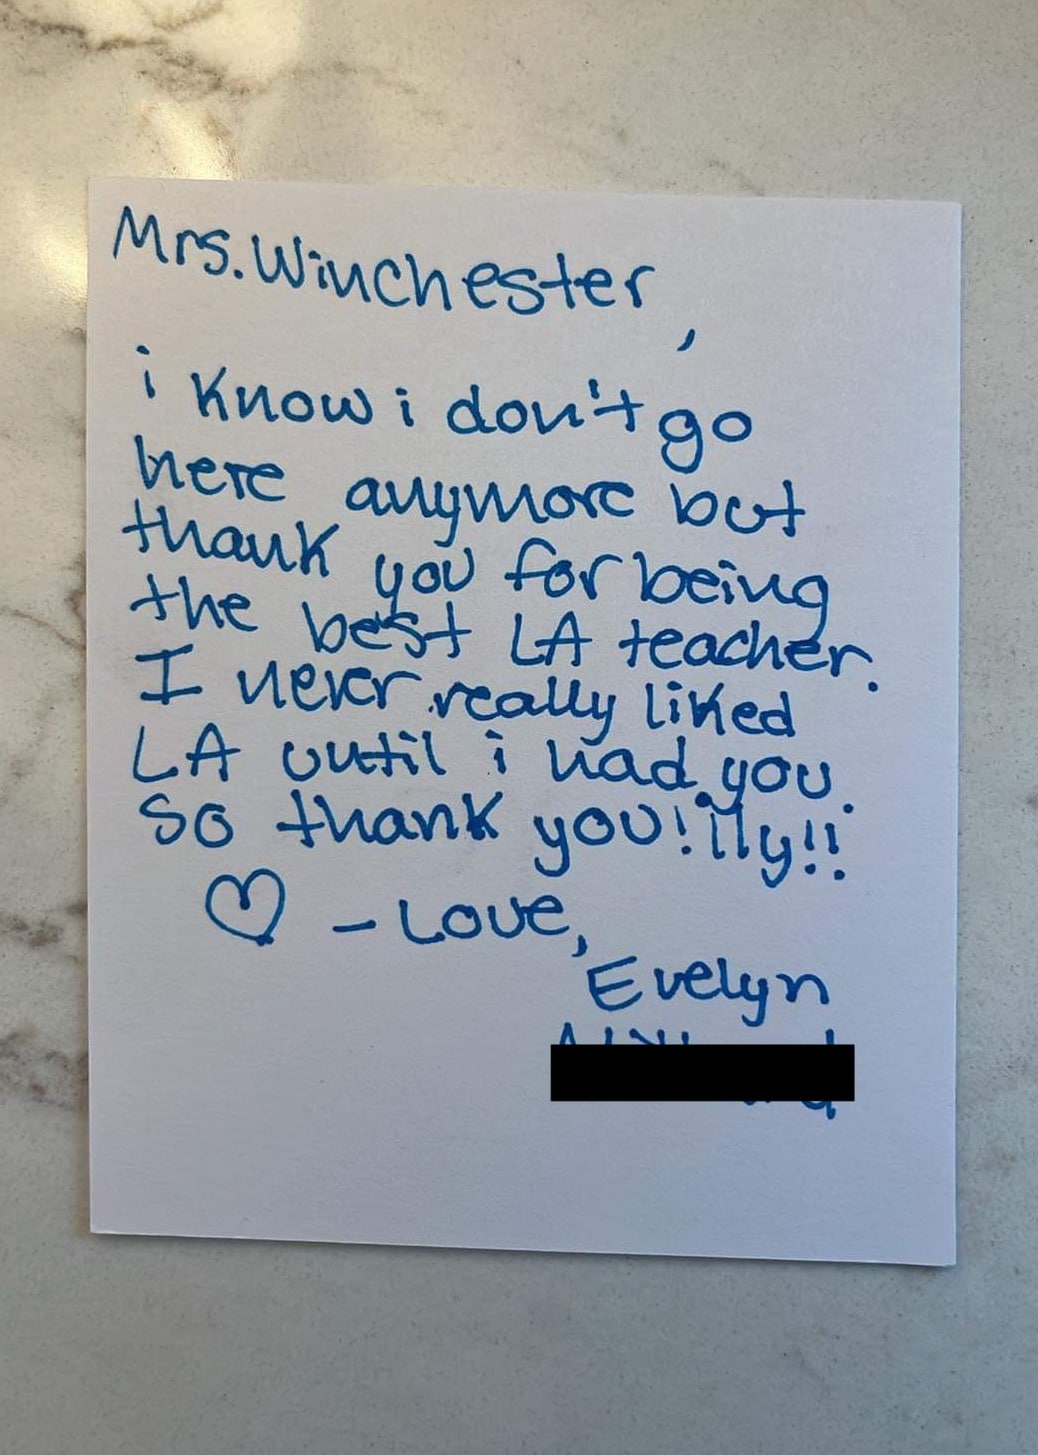 Mrs. Winchester,
i know i don't go
here anymore but
thank you for being
the best LA teacher.
I never really liked
LA until i had you.
So thank you! ily!!
♡ - Love,
Evelyn